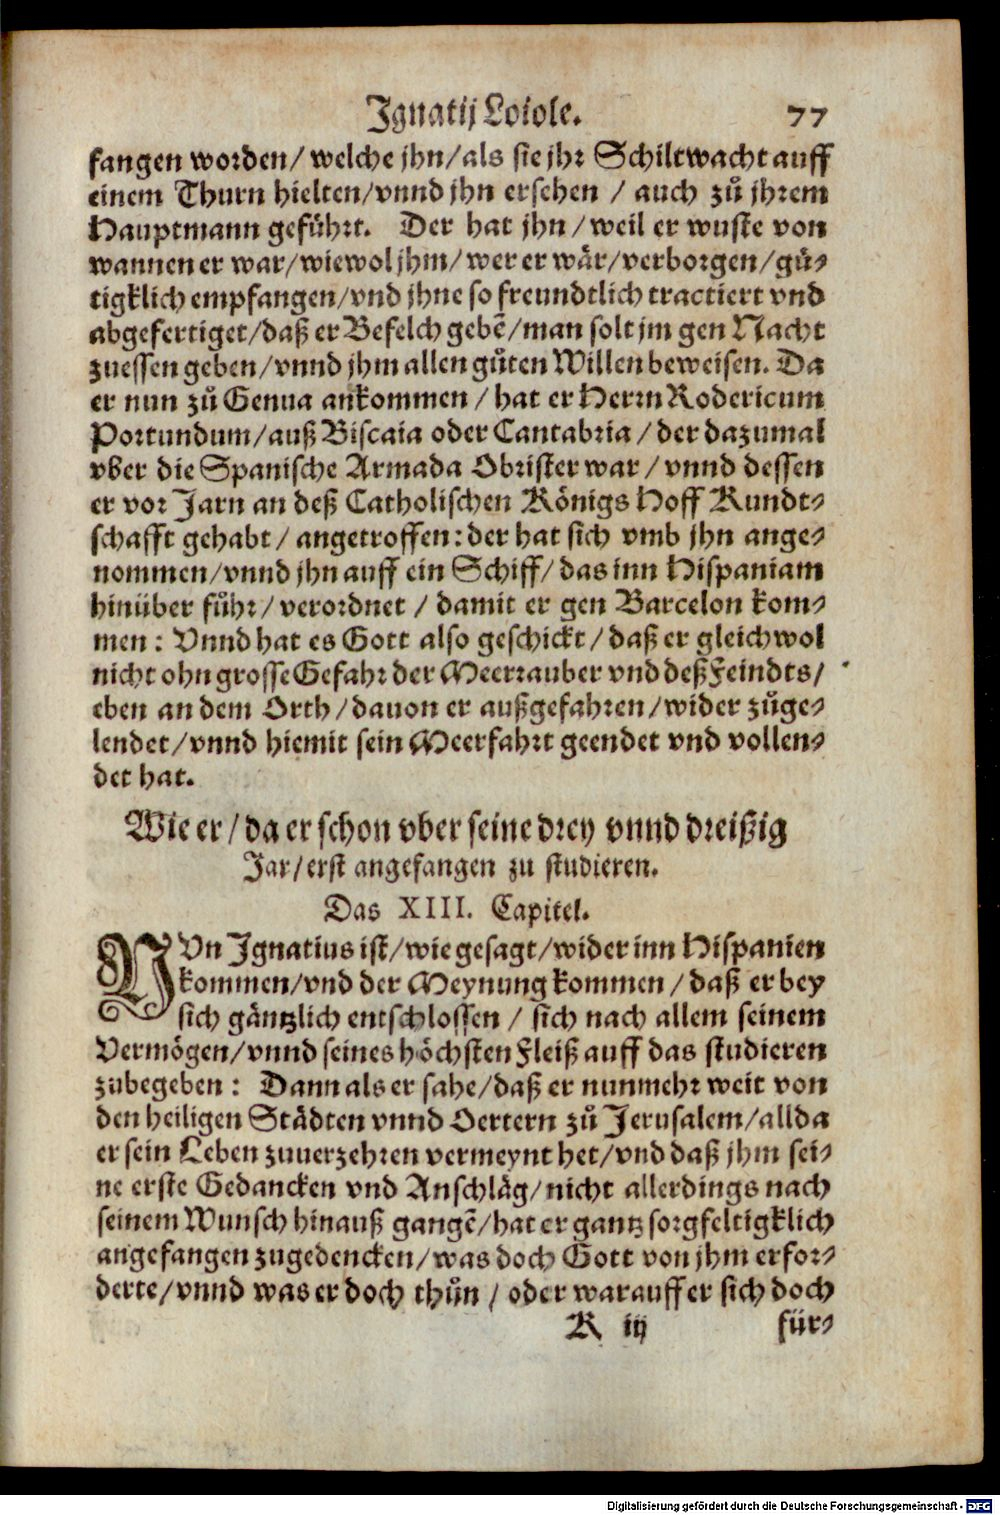 Ignatij Loiole. 77
fangen worden/ welche jhn/ als sie jhr Schiltwacht auff
einem Thurn hielten/ vnnd jhn ersehen / auch zů jhrem
Hauptmann gefůhrt. Der hat jhn / weil er wuste von
wannen er war/ wiewol jhm/ wer er wår/ verborgen/ gů-
tigklich empfangen/ vnd jhne so freundtlich tractiert vnd
abgefertiget/ daß er Befelch gebẽ/ man solt jm gen Nacht
zuessen geben/ vnnd jhm allen gůten Willen beweisen. Da
er nun zů Genua ankommen / hat er Herrn Rodericum
Portundum/ auß Biscaia oder Cantabria / der dazumal
vber die Spanische Armada Obrister war / vnnd dessen
er vor Jarn an deß Catholischen Königs Hoff Kundt-
schafft gehabt / angetroffen: der hat sich vmb jhn ange-
nommen/ vnnd jhn auff ein Schiff/ das inn Hispaniam
hinüber fůhr/ verordnet / damit er gen Barcelon kom-
men : Vnnd hat es Gott also geschickt / daß er gleichwol
nicht ohn grosse Gefahr der Meerrauber vnd deß Feindts/
eben an dem Orth / dauon er außgefahren / wider zůge-
lendet/ vnnd hiemit sein Meerfahrt geendet vnd vollen-
det hat.
Wie er / da er schon vber seine drey vnnd dreißig
Jar/ erst angefangen zu studieren.
Das XIII. Capitel.
NVn Ignatius ist/ wie gesagt/ wider inn Hispanien
kommen/ vnd der Meynung kommen / daß er bey
sich gäntzlich entschlossen / sich nach allem seinem
Vermögen/ vnnd seines höchsten Fleiß auff das studieren
zubegeben : Dann als er sahe/ daß er nunmehr weit von
den heiligen Städten vnnd Oertern zů Jerusalem/ allda
er sein Leben zuuerzehren vermeynt het/ vnd daß jhm sei-
ne erste Gedancken vnd Anschläg/ nicht allerdings nach
seinem Wunsch hinauß gangẽ/ hat er gantz sorgfeltigklich
angefangen zugedencken/ was doch Gott von jhm erfor-
derte/ vnnd was er doch thůn / oder warauff er sich doch
K iij für-
Digitalisierung gefördert durch die Deutsche Forschungsgemeinschaft - DFG